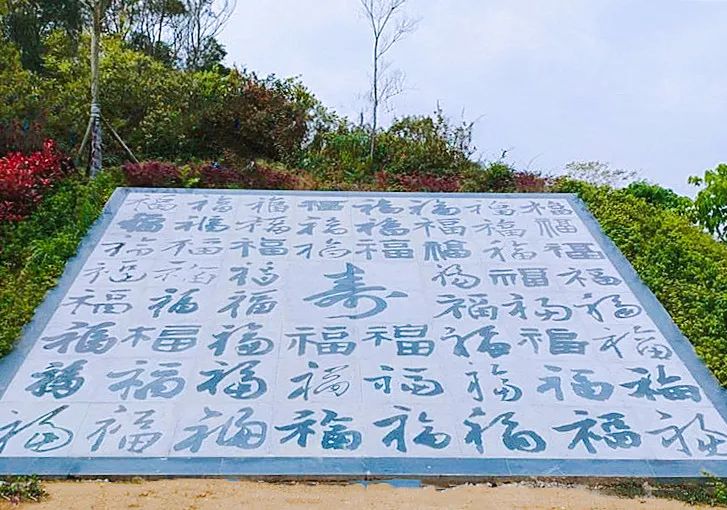 福福福福福福福福
福福福福福福福福
福福福福福福福福
福福福福福福
寿
福福福福福福
福福福福福福福福
福福福福福福福福
福福福福福福福福